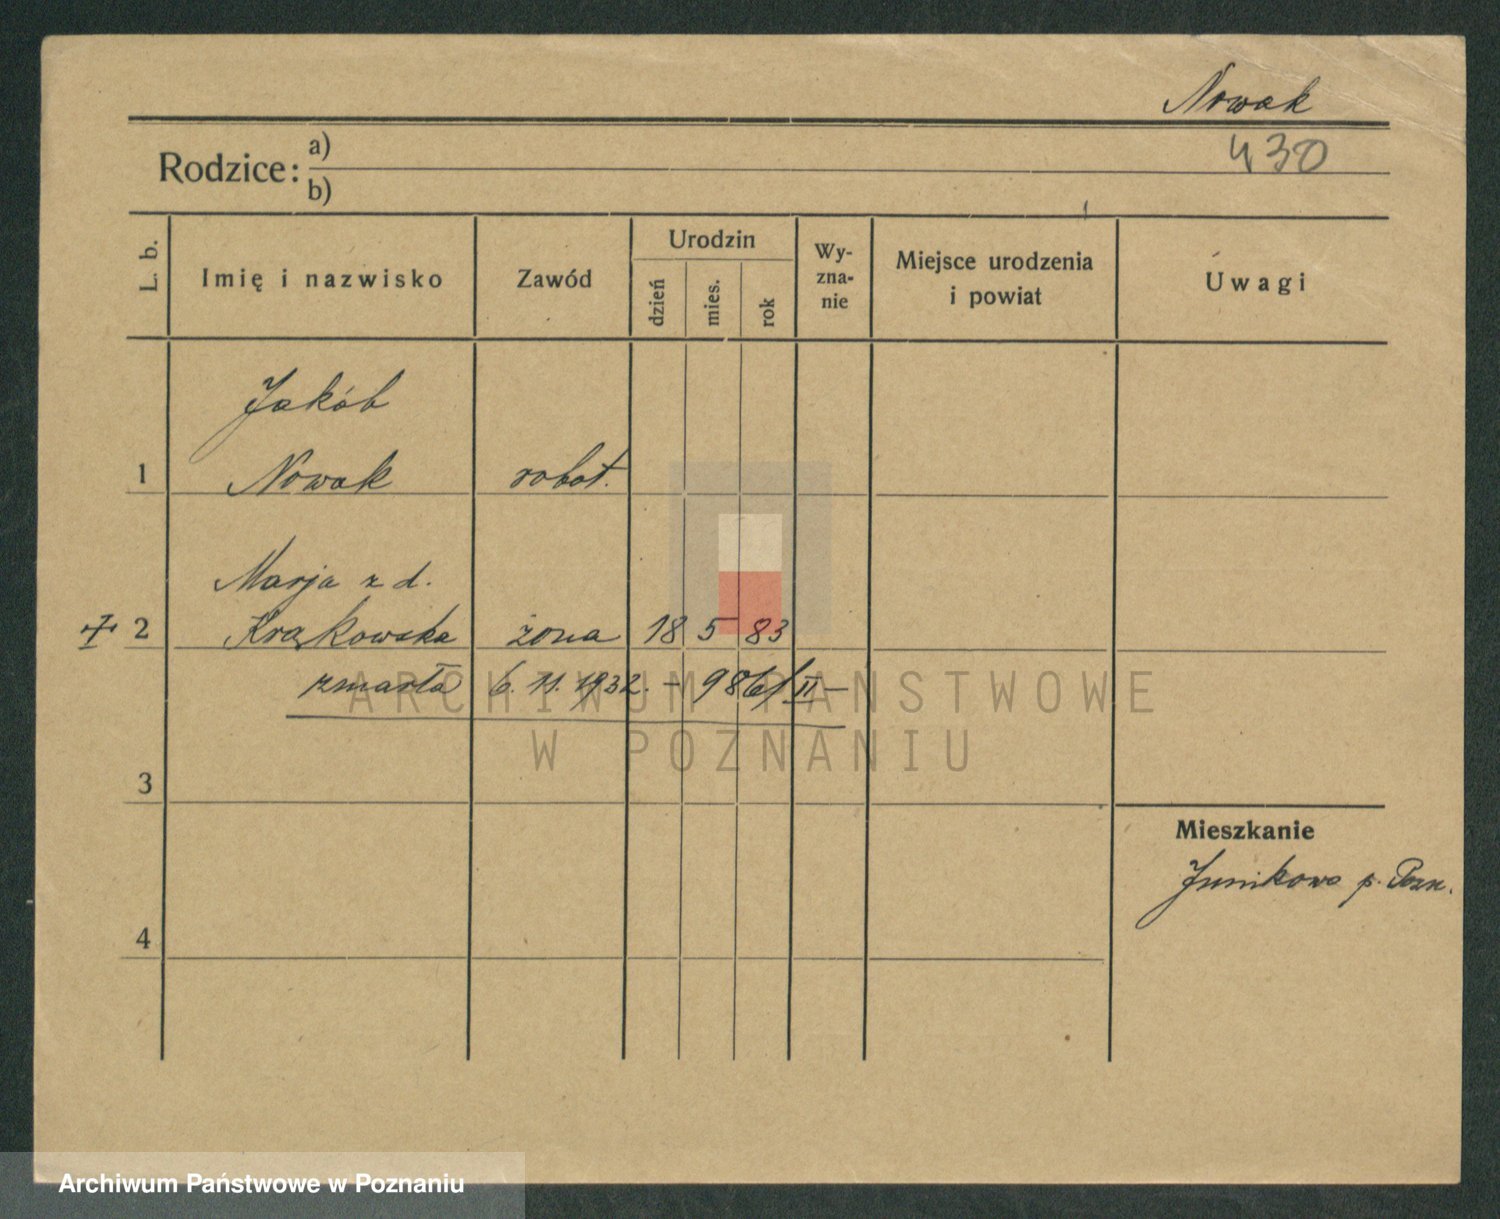 Nowak
430
Rodzice: a)
b)
L. b.
Imię i nazwisko
Zawód
Urodzin
dzień
mies.
rok
Wy-
zna-
nie
Miejsce urodzenia
i powiat
Uwagi
Jakób
1 Nowak robot.
Marja z d.
2 Krąkowska żona 18 5 83
zmarła 6. 11. 1932. – 986/II –
ARCHIWUM PAŃSTWOWE
W POZNANIU
3
Mieszkanie
Junikowo p. Pozn.
4
Archiwum Państwowe w Poznaniu